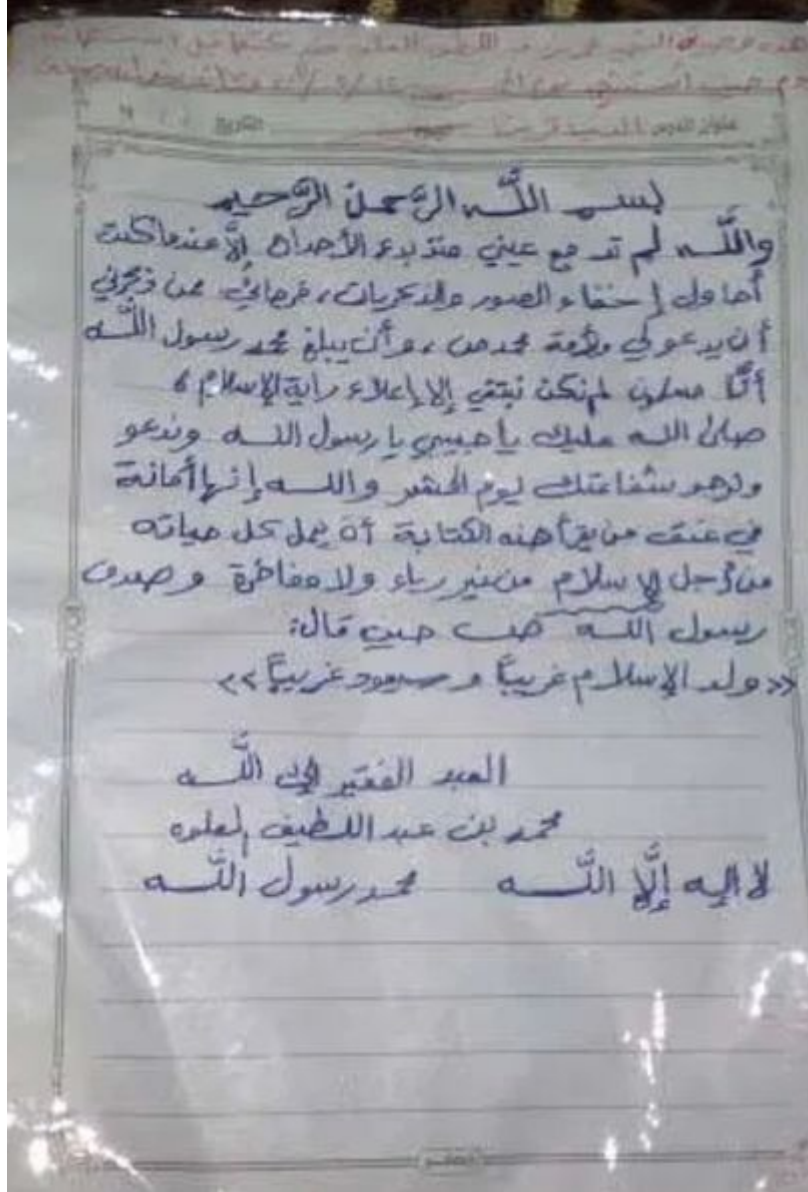 اللطيف
عنوان الدرس السيدة التاريخ
بسم الله الرَّحمن الرَّحيم
والله لم تدمع عيني منذ بدء الأحداث إلَّا عندما كنت
أحاول إخفاء الصور والذكريات، فرجائي ممن
أن يدعو لي ولأمة محمد ص، وأن يبلغ محمد رسول الله
أنَّا مسلمون لم نكن نبتغي إلا إعلاء راية الإسلام،
صلى الله عليك يا حبيبي يا رسول الله وندعو
شفاعتك يوم الحشر والله إنها أمانة
في عنق من يقرأ هذه الكتابة أن يعمل كل حياته
من أجل الإسلام من غير رياء ولا مفاخرة وصدق
رسول الله حين قال:
<<ولد الإسلام غريباً وسيعود غريباً>>
العبد الفقير إلى الله
محمد بن عبد اللطيف العلوه
لا اله إلَّا الله محمد رسول الله